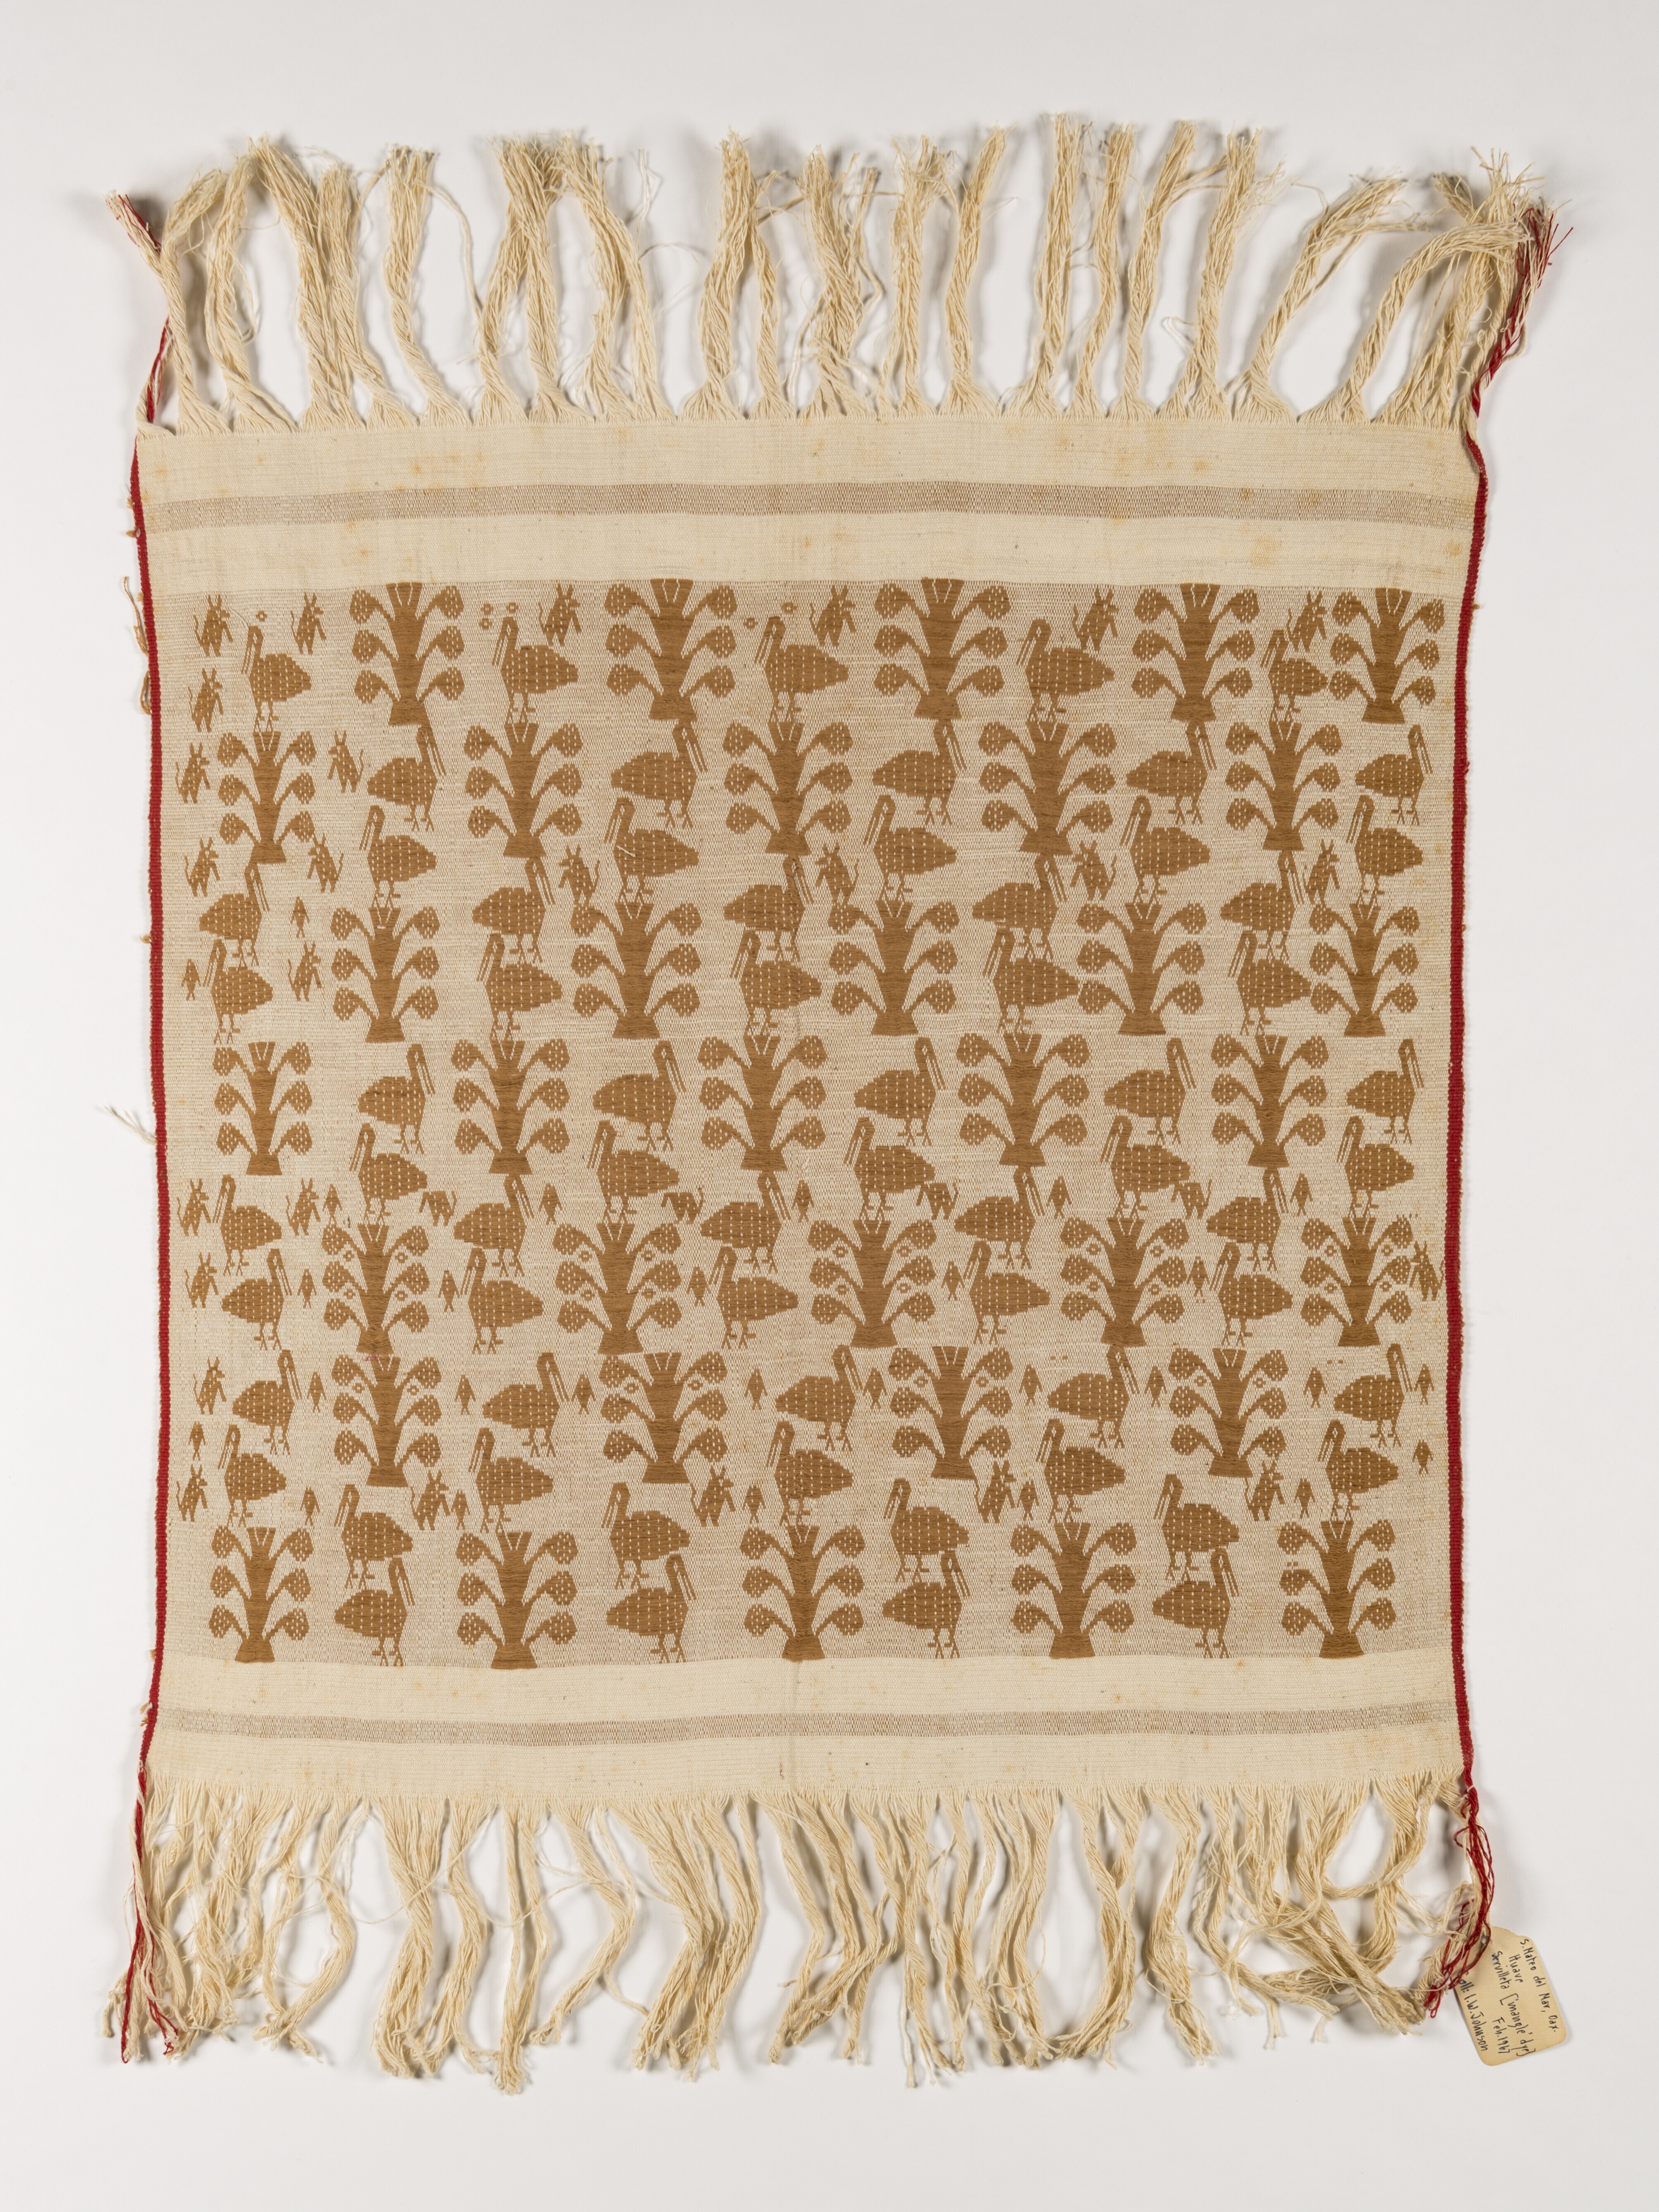 S. Mateo del Mar, Oax.
Huave
Servilleta ['mangle' dye]
Feb. 1967
I.W. Johnson